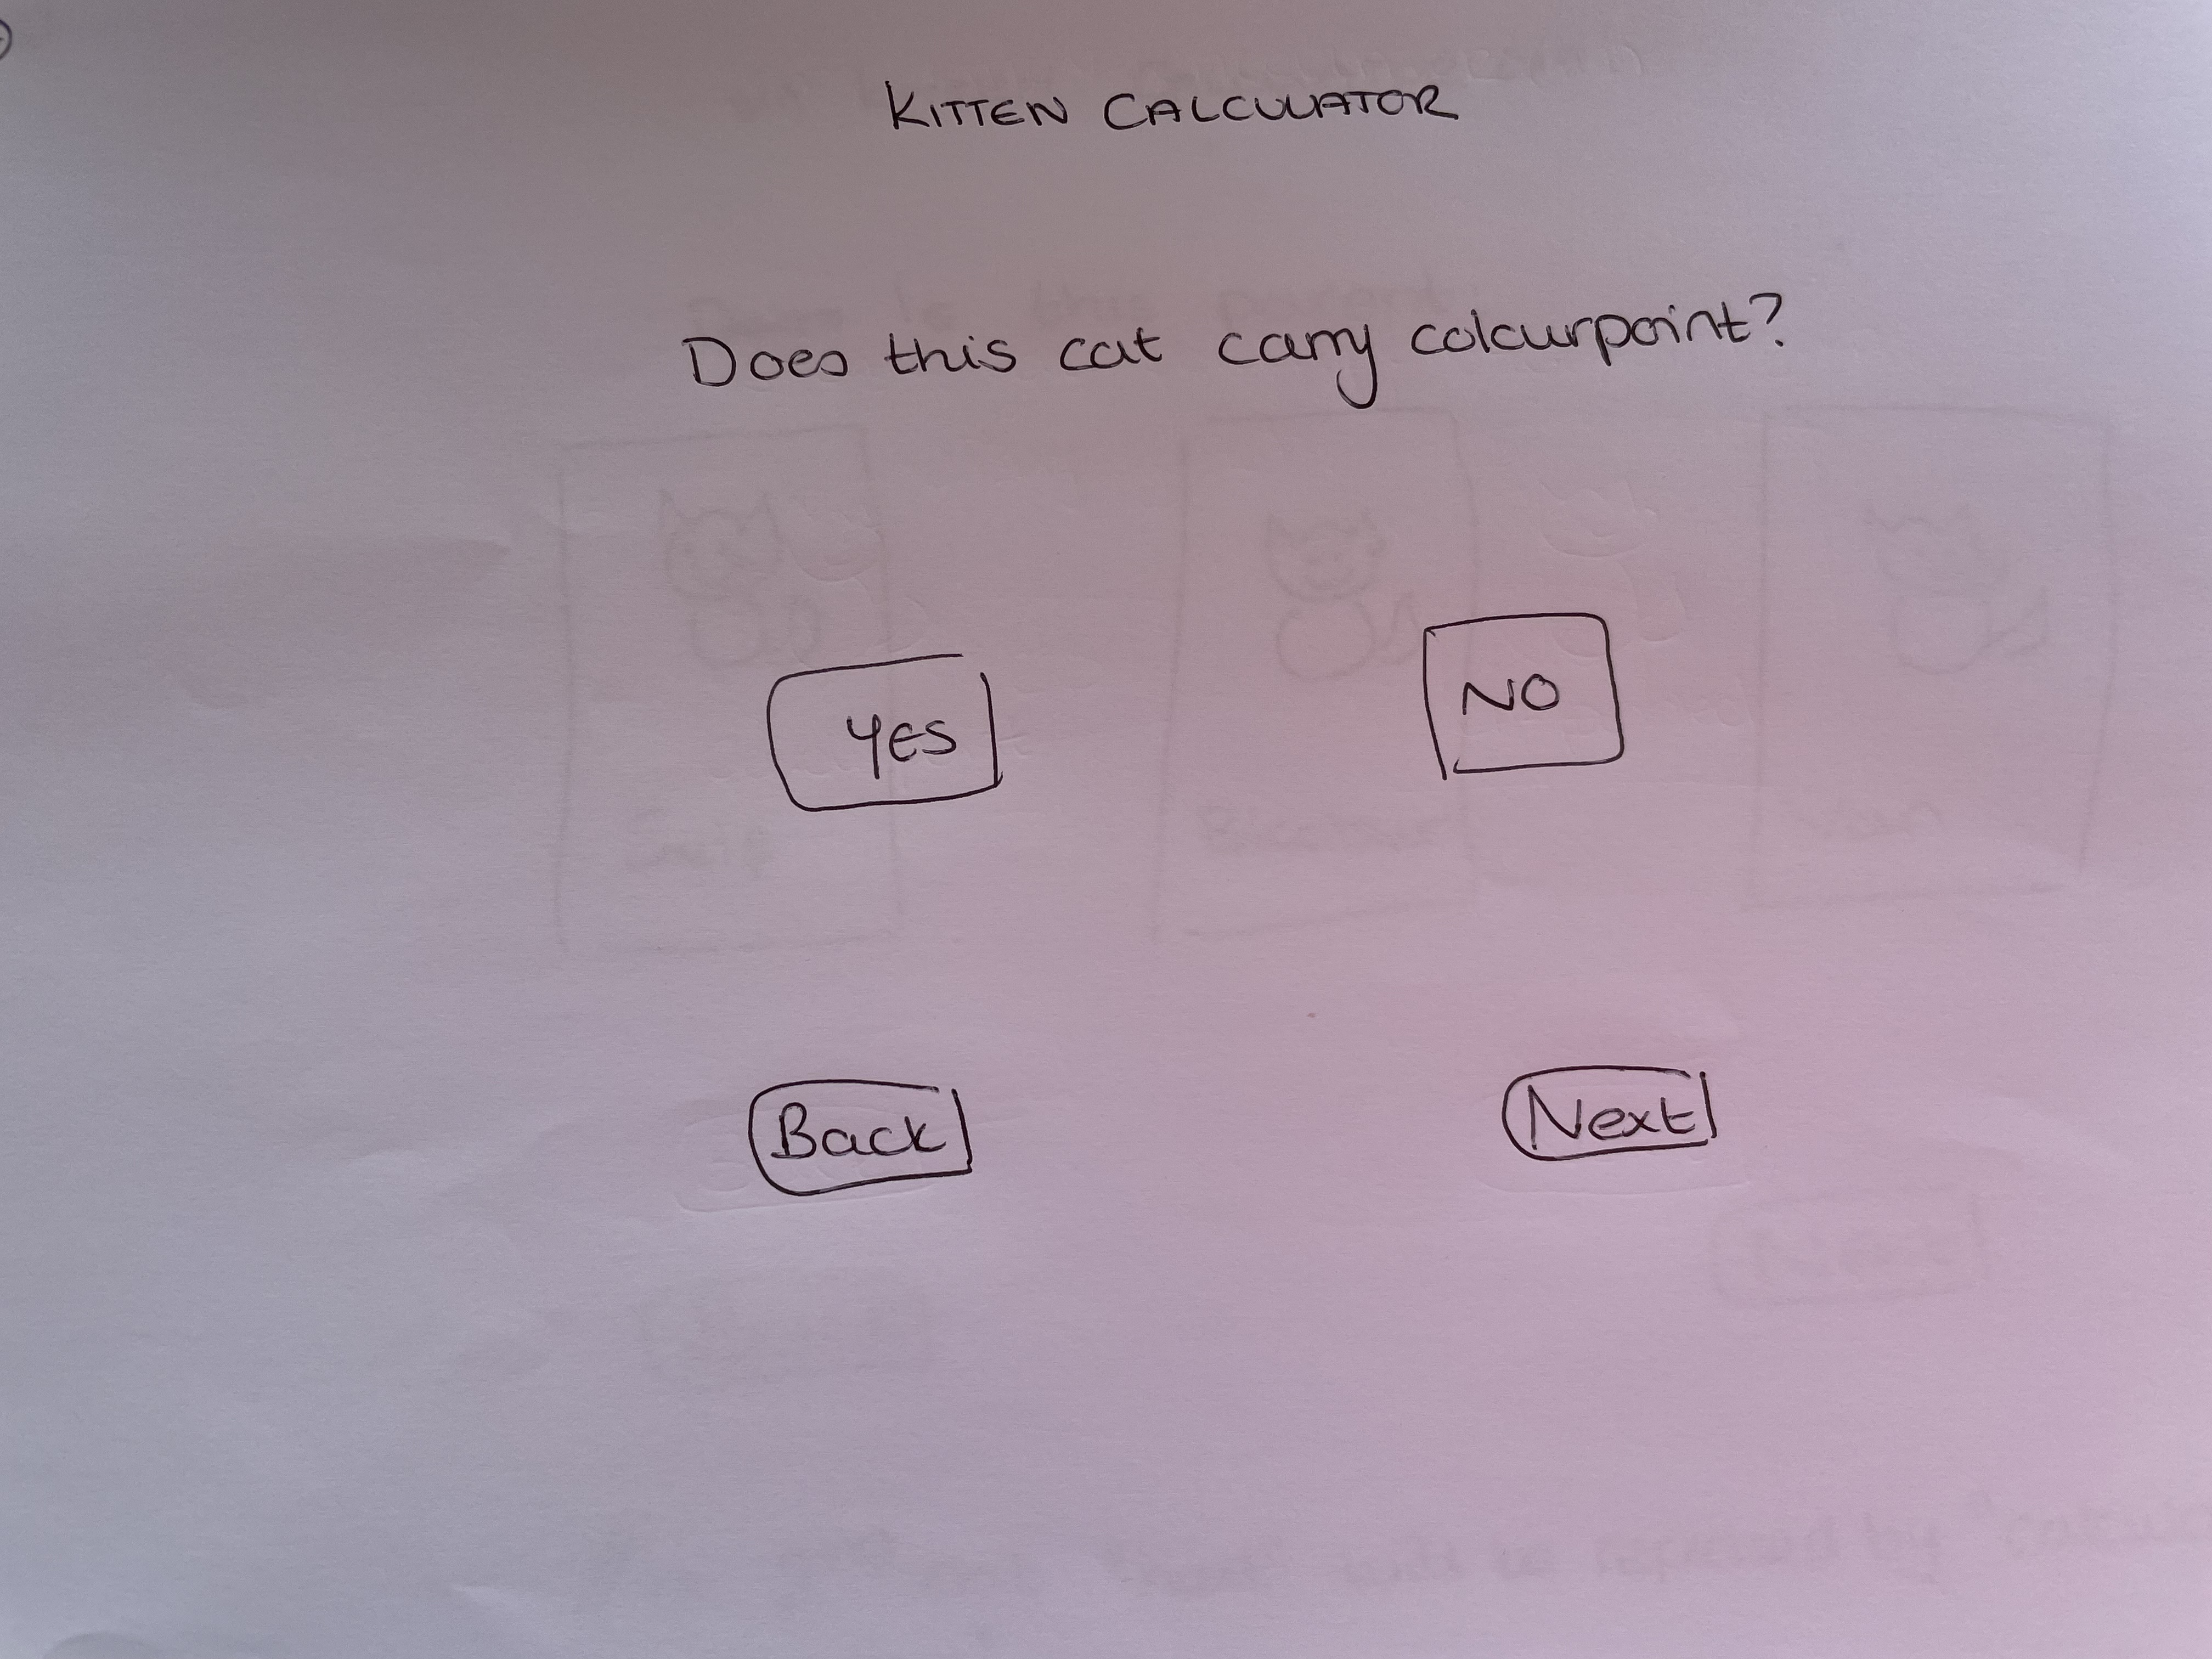 KITTEN CALCULATOR
Does this cat carry colourpoint?
YES
NO
Back
Next